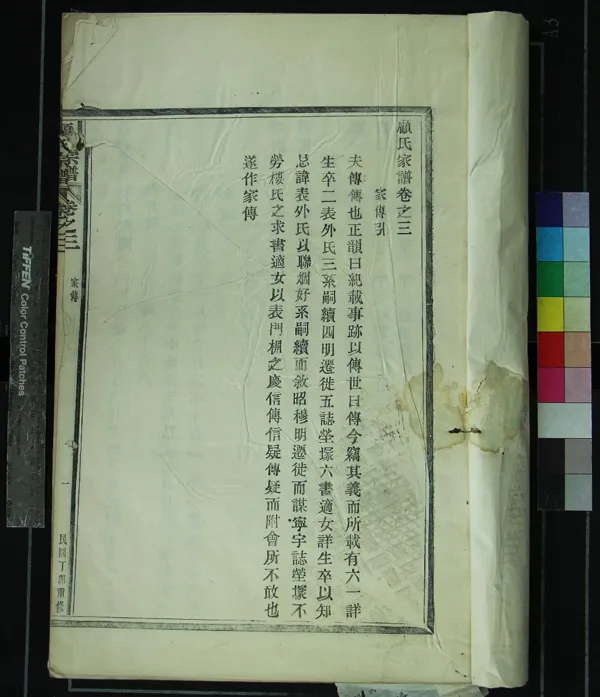 顧氏家譜卷之三
家傳引
夫傳傳也正韻曰紀載事跡以傳世曰傳今竊其義而所載有六一詳
生卒二表外氏三系嗣續四明遷徙五誌塋塚六書適女詳生卒以知
忌諱表外氏以聯烟好系嗣續而敘昭穆明遷徙而謀寧宇誌塋塚不
勞樵氏之求書適女以表門楣之慶信傳信疑傳疑而附會所不敢也
遂作家傳
顧氏宗譜 卷之三
家傳
一
民國丁卯重修
TIFFEN Color Control Patches
A3